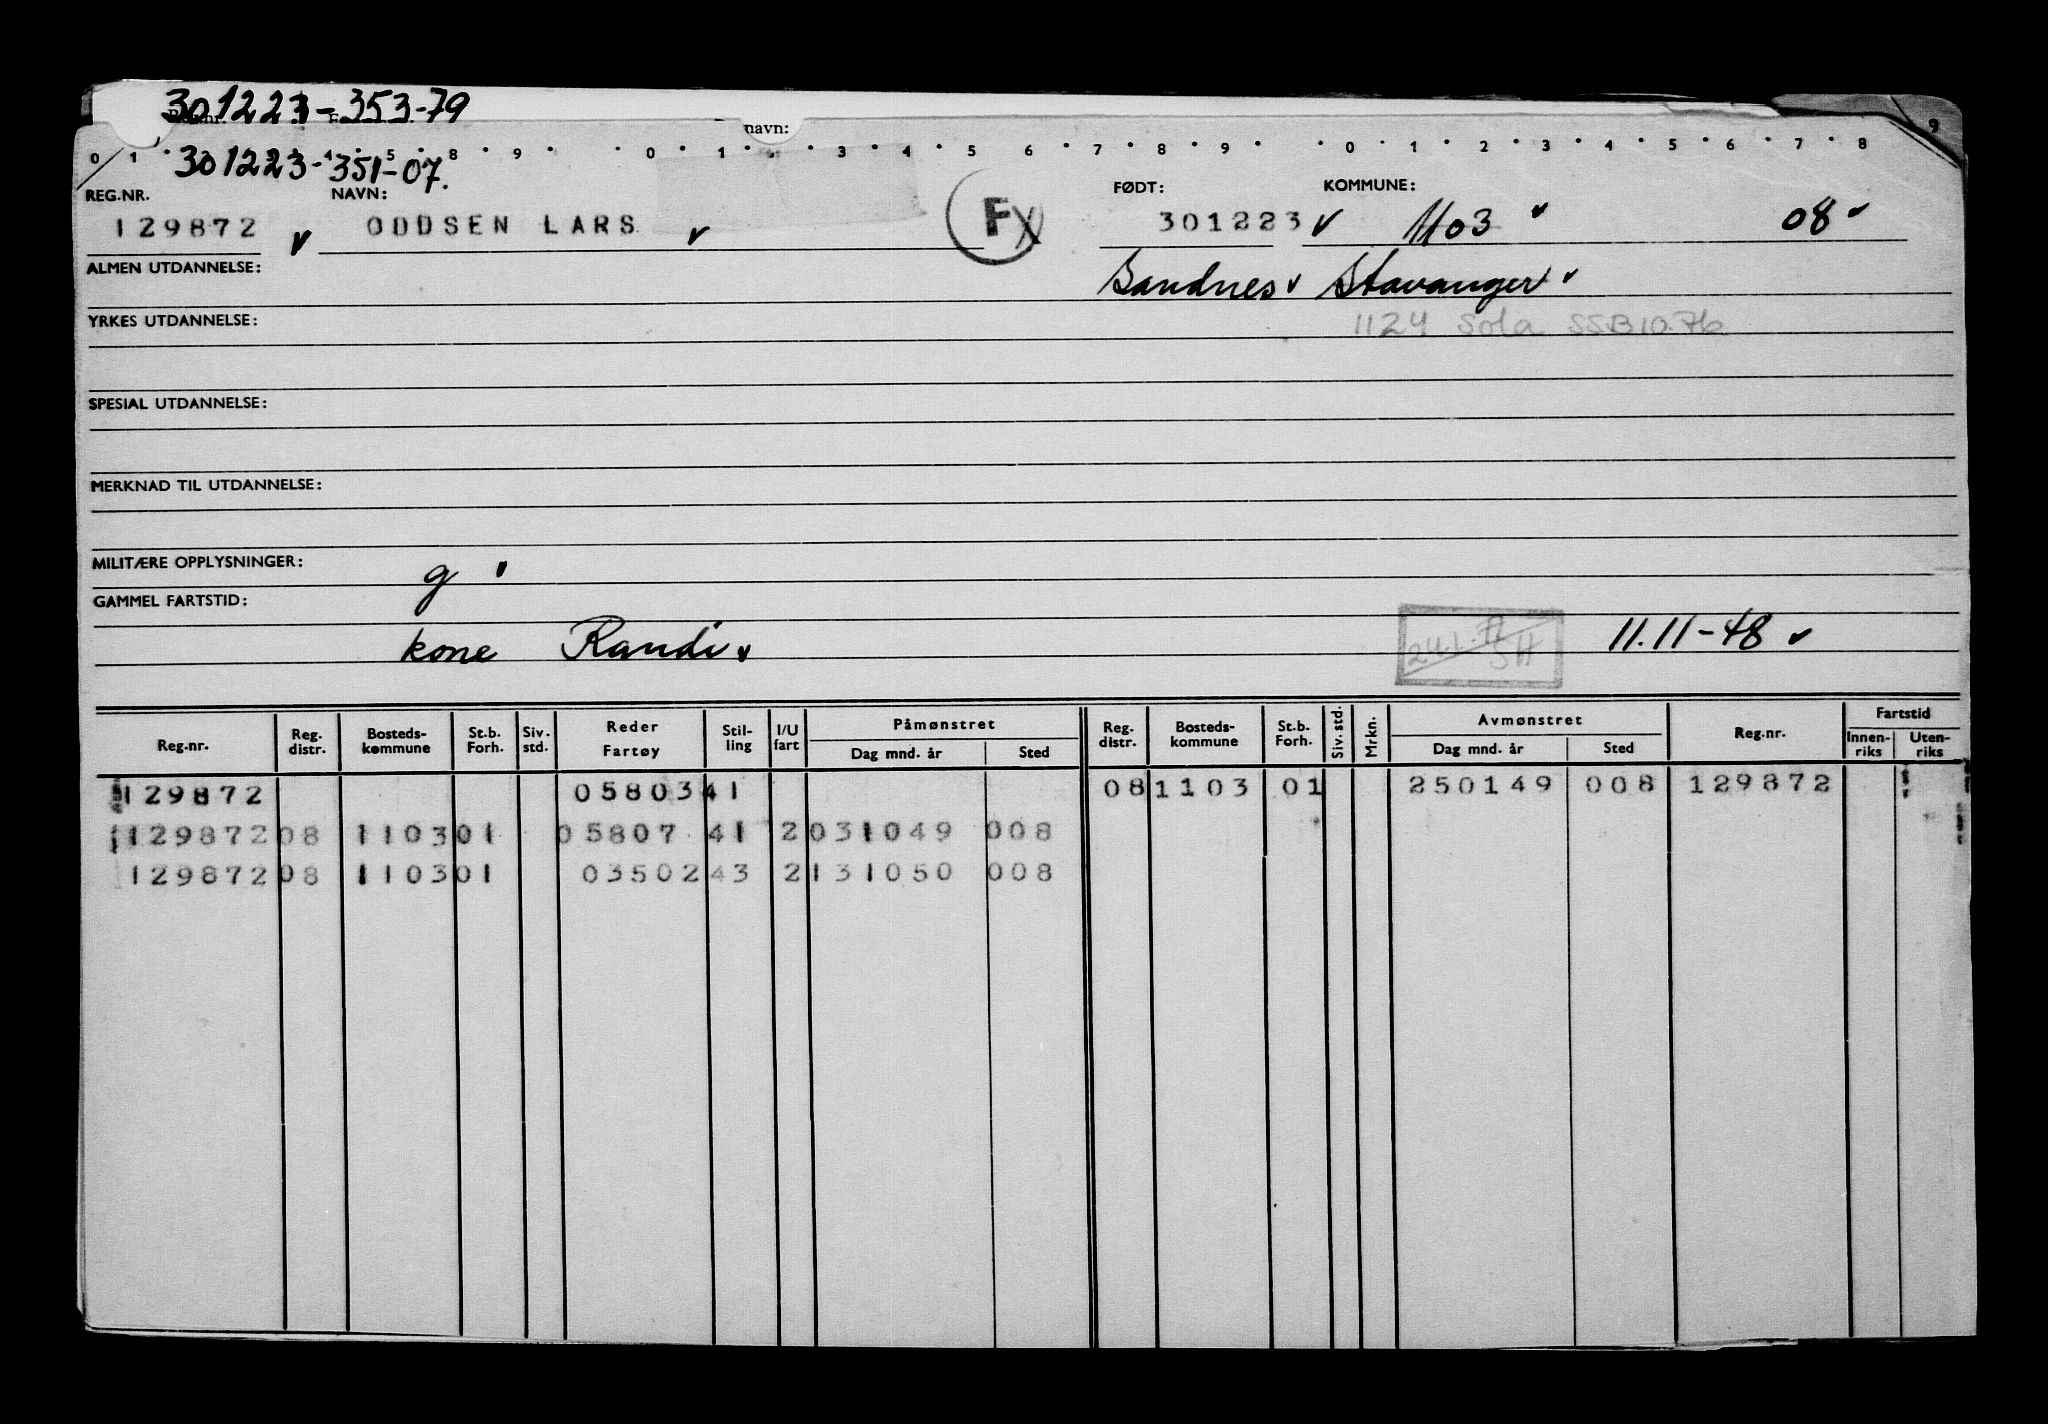 301223-353-79
navn:
0 1 4 5 8 9 0 1 2 3 4 5 6 7 8 9 0 1 2 3 4 5 6 7 8 9
301223-351-07.
REG.NR. NAVN: FØDT: KOMMUNE:
129872 v ODDSEN LARS v F 301223 v 1103 08
ALMEN UTDANNELSE: Sandnes Stavanger
YRKES UTDANNELSE: 1124 Sola SSB 10.76
SPESIAL UTDANNELSE:
MERKNAD TIL UTDANNELSE:
MILITÆRE OPPLYSNINGER: g
GAMMEL FARTSTID:
kone Randi 11.11-48
Reg.nr. Reg. distr. Bosteds-kommune St.b. Forh. Siv. std. Reder Fartøy Stil-ling I/U fart Påmønstret Dag mnd. år Sted Reg. distr. Bosteds-kommune St.b. Forh. Siv. std. Mrkn. Avmønstret Dag mnd. år Sted Reg.nr. Fartstid Innen-riks Uten-riks
129872 05803 41 08 1103 01 250149 008 129872
129872 08 1103 01 05807 41 2 031049 008
129872 08 1103 01 03502 43 2 131050 008